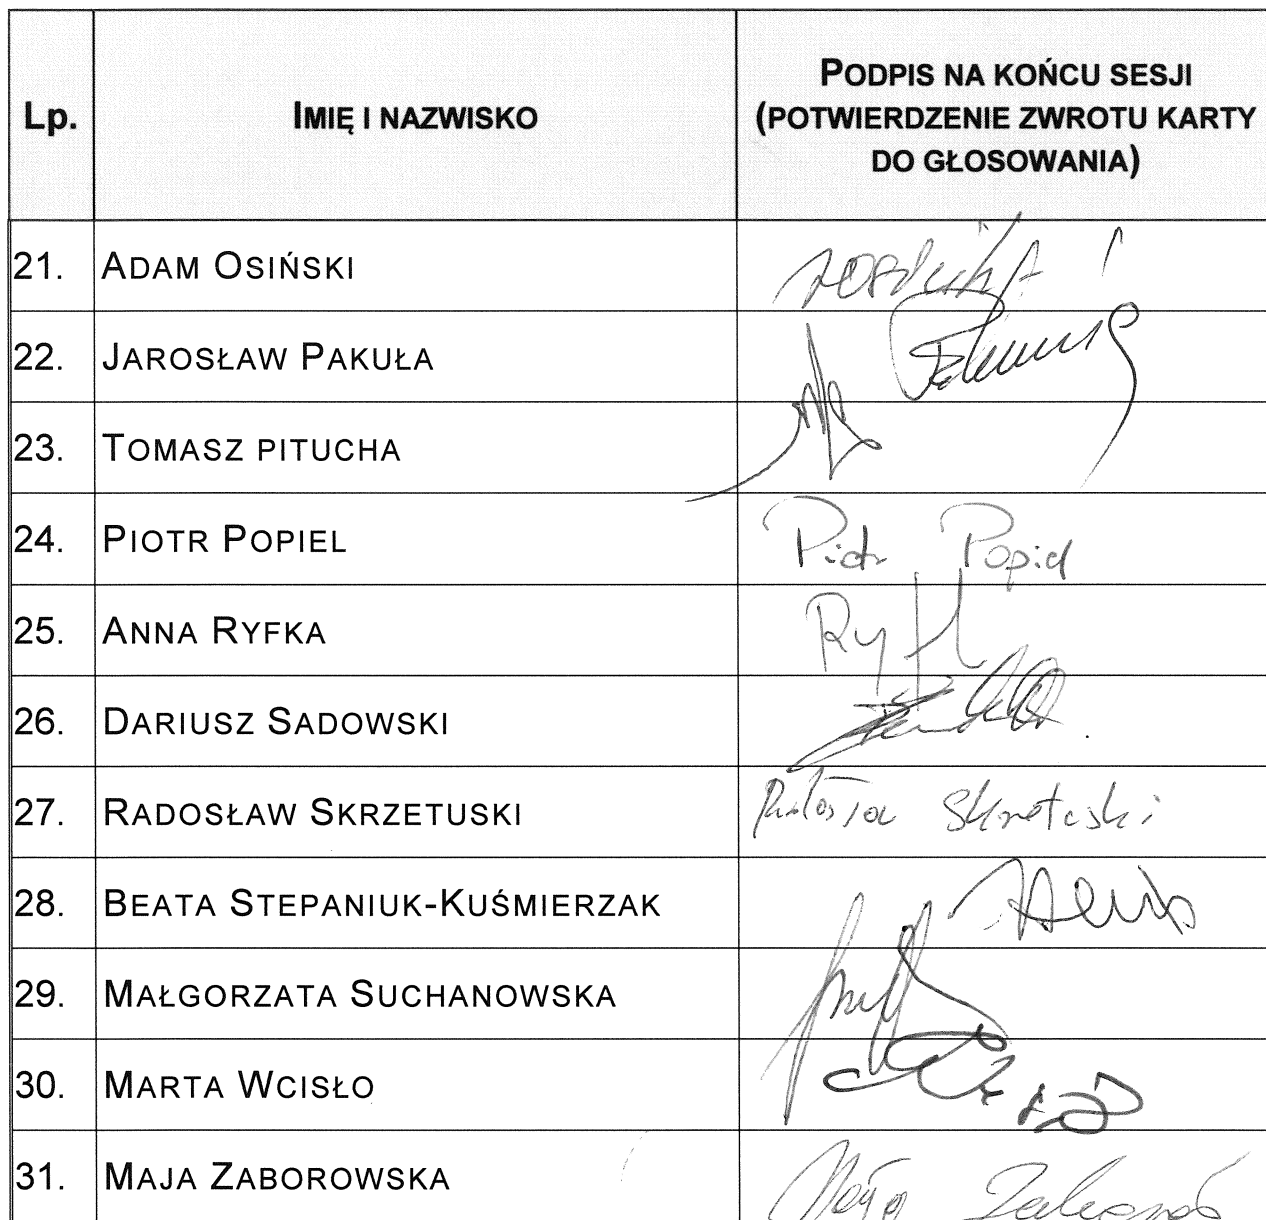 Lp.
IMIĘ I NAZWISKO
PODPIS NA KOŃCU SESJI
(POTWIERDZENIE ZWROTU KARTY
DO GŁOSOWANIA)
21. ADAM OSIŃSKI
22. JAROSŁAW PAKUŁA
23. TOMASZ PITUCHA
24. PIOTR POPIEL Piotr Popiel
25. ANNA RYFKA
26. DARIUSZ SADOWSKI
27. RADOSŁAW SKRZETUSKI
28. BEATA STEPANIUK-KUŚMIERZAK
29. MAŁGORZATA SUCHANOWSKA
30. MARTA WCISŁO
31. MAJA ZABOROWSKA Maja